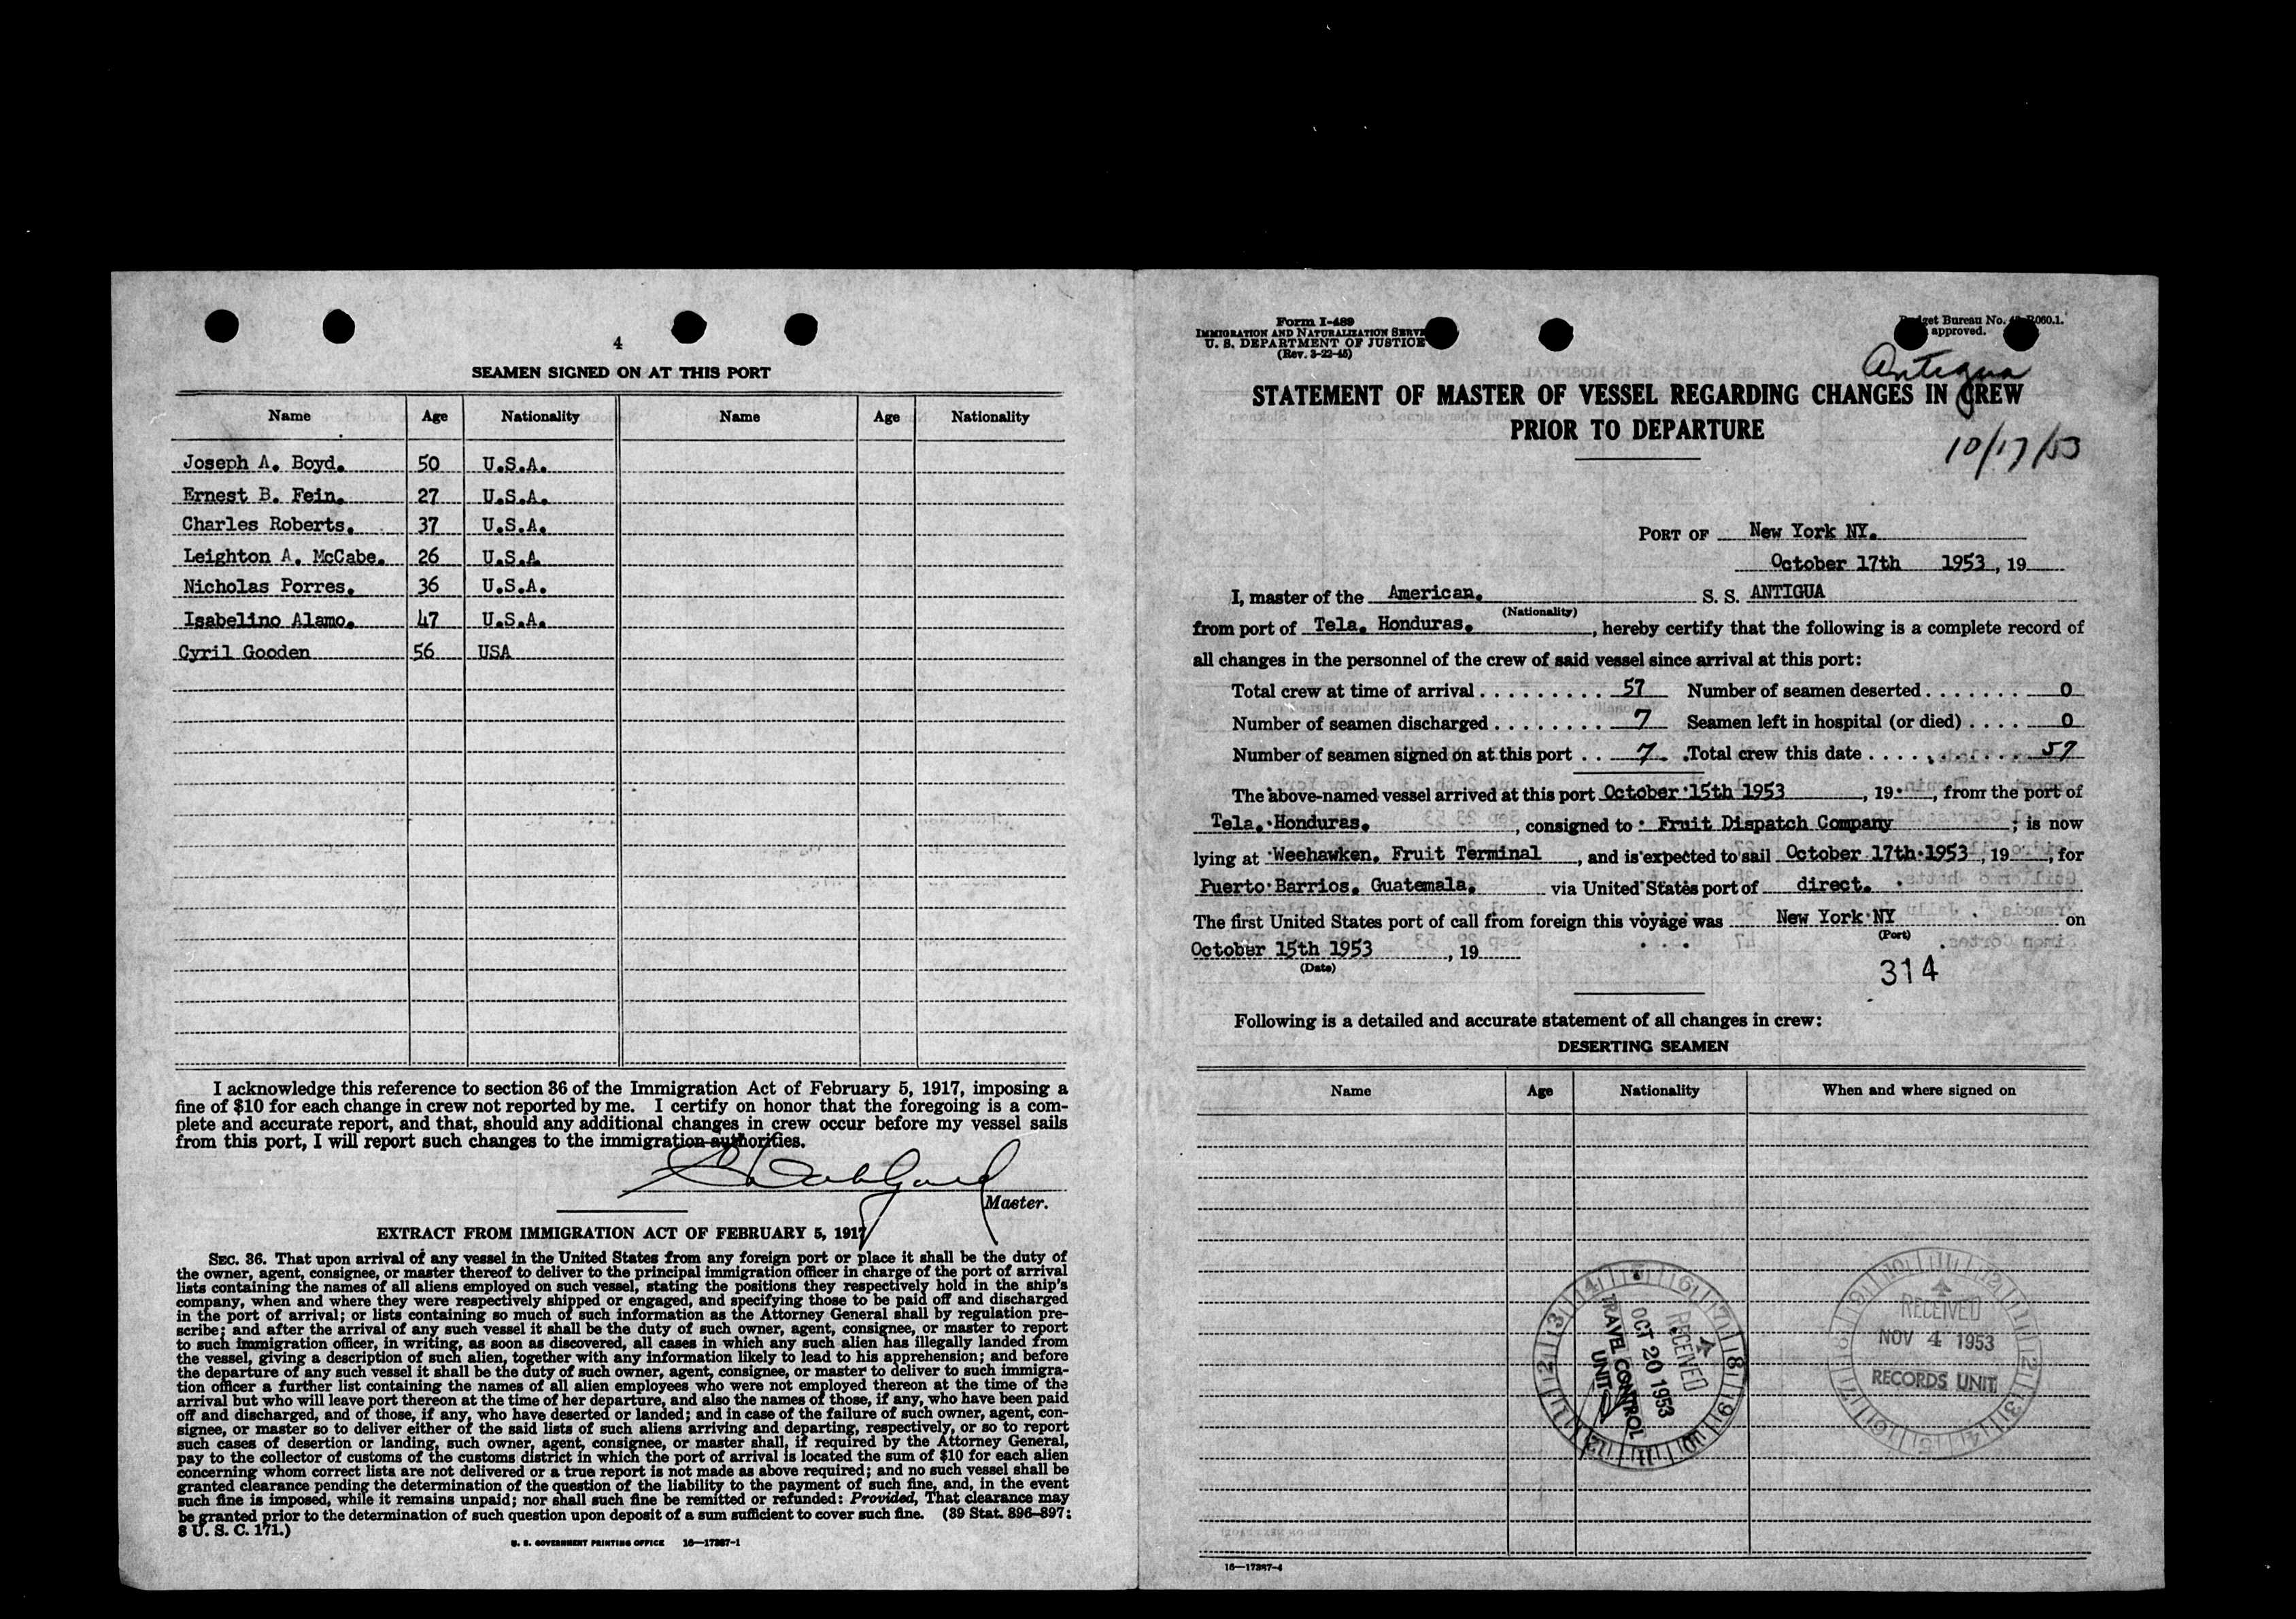 4
SEAMEN SIGNED ON AT THIS PORT
Name Age Nationality Name Age Nationality
Joseph A. Boyd. 50 U.S.A.
Ernest B. Fein. 27 U.S.A.
Charles Roberts. 37 U.S.A.
Leighton A. McCabe. 26 U.S.A.
Nicholas Porres. 36 U.S.A.
Isabelino Alamo. 47 U.S.A.
Cyril Gooden 56 USA
I acknowledge this reference to section 36 of the Immigration Act of February 5, 1917, imposing a
fine of $10 for each change in crew not reported by me. I certify on honor that the foregoing is a com-
plete and accurate report, and that, should any additional changes in crew occur before my vessel sails
from this port, I will report such changes to the immigration authorities.
Master.
EXTRACT FROM IMMIGRATION ACT OF FEBRUARY 5, 1917
SEC. 36. That upon arrival of any vessel in the United States from any foreign port or place it shall be the duty of
the owner, agent, consignee, or master thereof to deliver to the principal immigration officer in charge of the port of arrival
lists containing the names of all aliens employed on such vessel, stating the positions they respectively hold in the ship's
company, when and where they were respectively shipped or engaged, and specifying those to be paid off and discharged
in the port of arrival; or lists containing so much of such information as the Attorney General shall by regulation pre-
scribe; and after the arrival of any such vessel it shall be the duty of such owner, agent, consignee, or master to report
to such immigration officer, in writing, as soon as discovered, all cases in which any such alien has illegally landed from
the vessel, giving a description of such alien, together with any information likely to lead to his apprehension; and before
the departure of any such vessel it shall be the duty of such owner, agent, consignee, or master to deliver to such immigra-
tion officer a further list containing the names of all alien employees who were not employed thereon at the time of the
arrival but who will leave port thereon at the time of her departure, and also the names of those, if any, who have been paid
off and discharged, and of those, if any, who have deserted or landed; and in case of the failure of such owner, agent, con-
signee, or master so to deliver either of the said lists of such aliens arriving and departing, respectively, or so to report
such cases of desertion or landing, such owner, agent, consignee, or master shall, if required by the Attorney General,
pay to the collector of customs of the customs district in which the port of arrival is located the sum of $10 for each alien
concerning whom correct lists are not delivered or a true report is not made as above required; and no such vessel shall be
granted clearance pending the determination of the question of the liability to the payment of such fine, and, in the event
such fine is imposed, while it remains unpaid; nor shall such fine be remitted or refunded: Provided, That clearance may
be granted prior to the determination of such question upon deposit of a sum sufficient to cover such fine. (39 Stat. 896–897;
8 U. S. C. 171.)
U. S. GOVERNMENT PRINTING OFFICE 16—17387-1
Form I-489
IMMIGRATION AND NATURALIZATION
U. S. DEPARTMENT OF JUSTICE
(Rev. 3-22-45)
Bureau No.
approved.
Antigua
STATEMENT OF MASTER OF VESSEL REGARDING CHANGES IN CREW
PRIOR TO DEPARTURE
10/17/53
PORT OF New York NY.
October 17th 1953, 19
I, master of the American. S. S. ANTIGUA
(Nationality)
from port of Tela. Honduras. , hereby certify that the following is a complete record of
all changes in the personnel of the crew of said vessel since arrival at this port:
Total crew at time of arrival 57 Number of seamen deserted 0
Number of seamen discharged 7 Seamen left in hospital (or died) 0
Number of seamen signed on at this port 7 Total crew this date 57
The above-named vessel arrived at this port October 15th 1953 , 19 , from the port of
Tela. Honduras. , consigned to Fruit Dispatch Company ; is now
lying at Weehawken. Fruit Terminal , and is expected to sail October 17th 1953 , 19 , for
Puerto Barrios. Guatemala. via United States port of direct.
The first United States port of call from foreign this voyage was New York NY on
(Port)
October 15th 1953 , 19
(Date)
314
Following is a detailed and accurate statement of all changes in crew:
DESERTING SEAMEN
Name Age Nationality When and where signed on
RECEIVED
OCT 20 1953
TRAVEL CONTROL
UNIT
RECEIVED
NOV 4 1953
RECORDS UNIT
16—17387-4